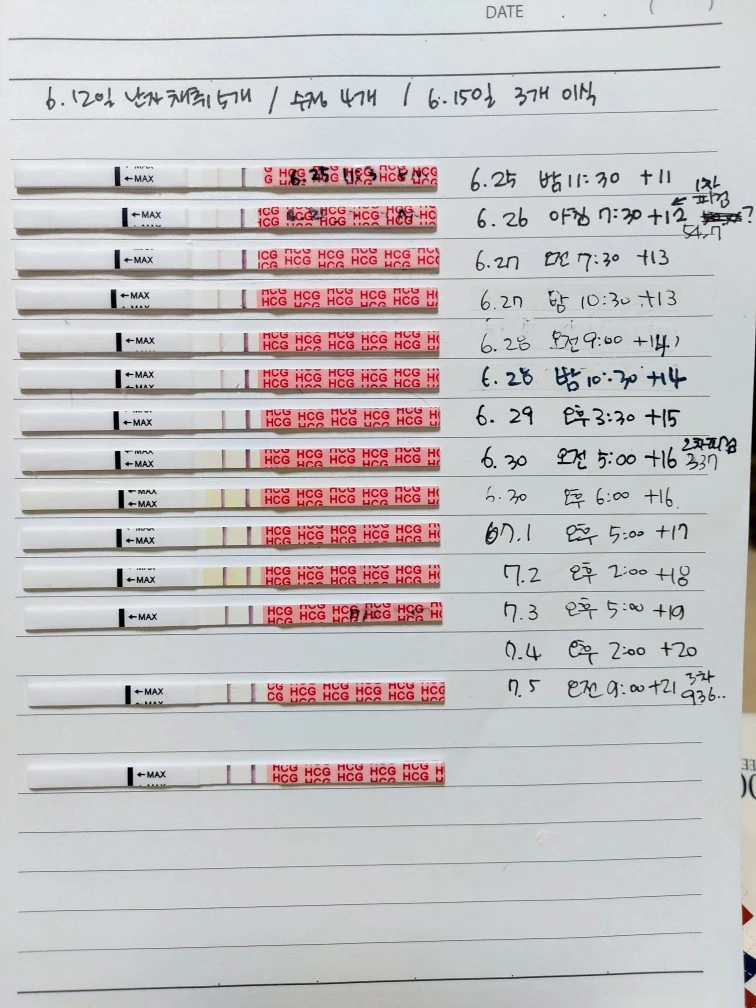 DATE . . ( )
6.12일 난자채취 5개 / 수정 4개 / 6.15일 3개 이식
←MAX HCG HCG 6.25 밤 11:30 +11 1차 피검
←MAX HCG HCG HCG HCG 6.26 아침 7:30 +12 ← ? 54.7
←MAX HCG HCG HCG HCG HCG 6.27 오전 7:30 +13
←MAX HCG HCG HCG HCG HCG 6.27 밤 10:30 +13
←MAX HCG HCG HCG HCG HCG 6.28 오전 9:00 +14
←MAX HCG HCG HCG HCG HCG 6.28 밤 10:30 +14
←MAX HCG HCG HCG HCG HCG 6.29 오후 3:30 +15
←MAX HCG HCG HCG HCG HCG 6.30 오전 5:00 +16 2차피검 337
←MAX HCG HCG HCG HCG HCG 6.30 오후 6:00 +16
←MAX HCG HCG HCG HCG HCG 7.1 오후 5:00 +17
←MAX HCG HCG HCG HCG HCG 7.2 오후 2:00 +18
←MAX HCG HCG HCG HCG 7.3 오후 5:00 +19
7.4 오후 2:00 +20
←MAX CG HCG HCG HCG HCG HCG 7.5 오전 9:00 +21 3차 936..
←MAX HCG HCG HCG HCG HCG H